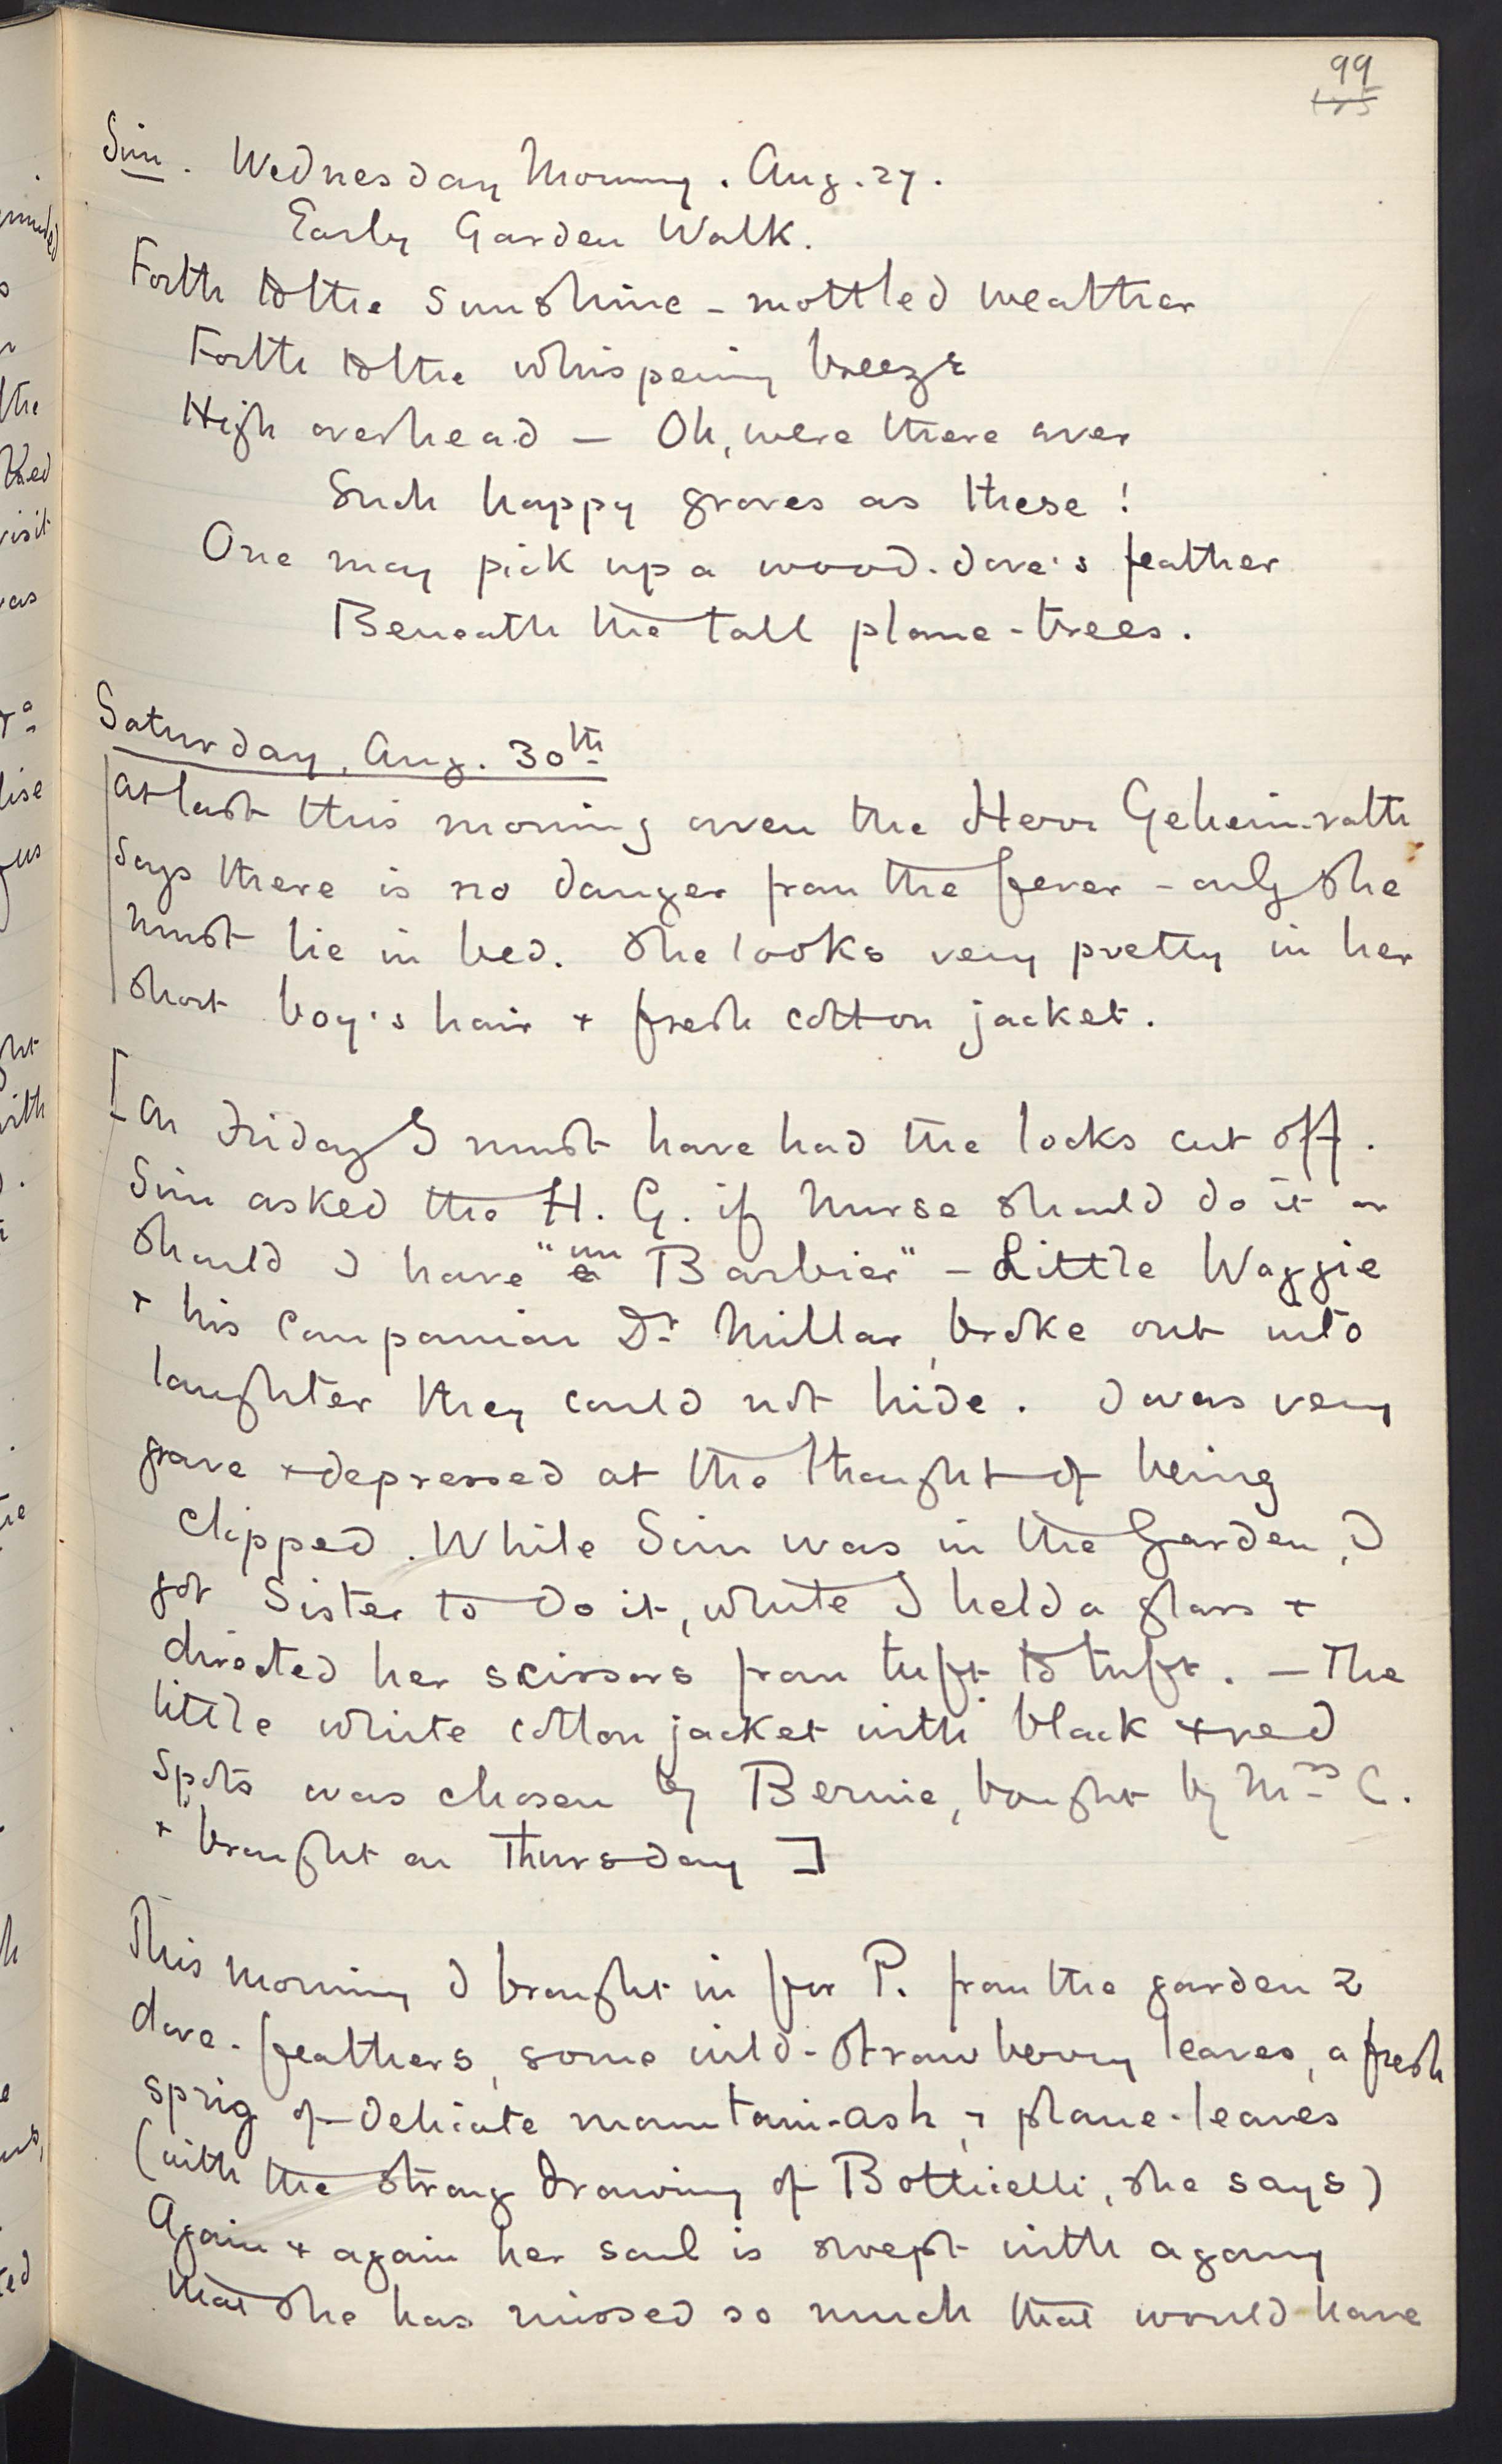 99
Sim. Wednesday Morning. Aug. 27.
Early Garden Walk.
Forth to the sunshine-mottled weather
Forth to the whispering breeze
High overhead — Oh, were there ever
Such happy groves as these!
One may pick up a wood-dove's feather
Beneath the tall plane-trees.
Saturday, Aug. 30th
At last this morning even the Herr Geheim-rath
says there is no danger from the fever – only she
must lie in bed. She looks very pretty in her
short boy's hair + fresh cotton jacket.
[On Friday I must have had the locks cut off.
Sim asked the H. G. if Nurse should do it or
should I have "un Barbier" – Little Waggie
+ his companion Dr Millar, broke out into
laughter they could not hide. I was very
grave + depressed at the thought of being
clipped. While Sim was in the Garden, I
got Sister to do it, while I held a glass +
directed her scissors from tuft to tuft. – The
little white cotton jacket with black + red
spots was chosen by Bernie, bought by Mrs C.
+ brought on Thursday]
This morning I brought in for P. from the garden 2
dove-feathers, some wild-strawberry leaves, a fresh
sprig of delicate mountain-ash, + plane-leaves
(with the strong drawing of Botticelli, she says)
Again + again her soul is swept with agony
that she has missed so much that would have